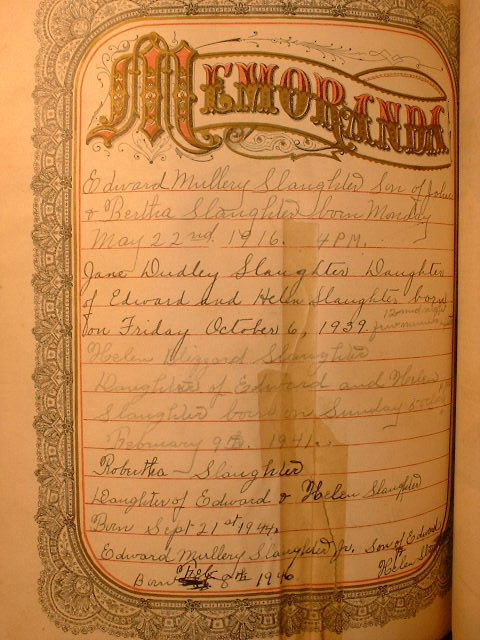 MEMORANDA
Edward Mullery Slaughter Son of
& Bertha Slaughter born Monday
May 22nd 1916. 4 PM.
Jane Dudley Slaughter Daughter
of Edward and Helen Slaughter born
on Friday October 6, 1939. 12 midnight
few minutes
Helen Slaughter
Daughter of Edward and Helen
Slaughter born on Sunday
February 9th. 1941.
Robertha - Slaughter
Daughter of Edward & Helen Slaughter
Born Sept 21st 1944.
Edward Mullery Slaughter Jr. Son of Edward
& Helen
Born Feb 8th 1946